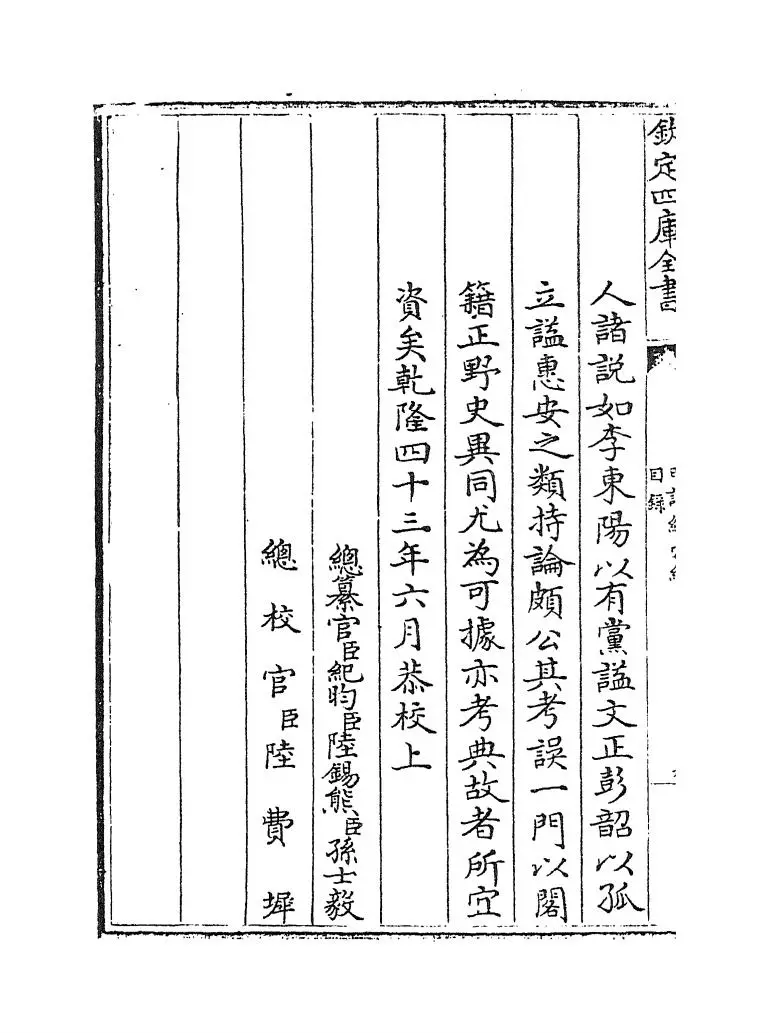 欽定四庫全書
目錄
人諸說如李東陽以有黨謚文正彭韶以孤
立謚惠安之類持論頗公其考誤一門以閣
籍正野史異同尤為可據亦考典故者所宜
資矣乾隆四十三年六月恭校上
總纂官臣紀昀臣陸錫熊臣孫士毅
總校官臣陸費墀